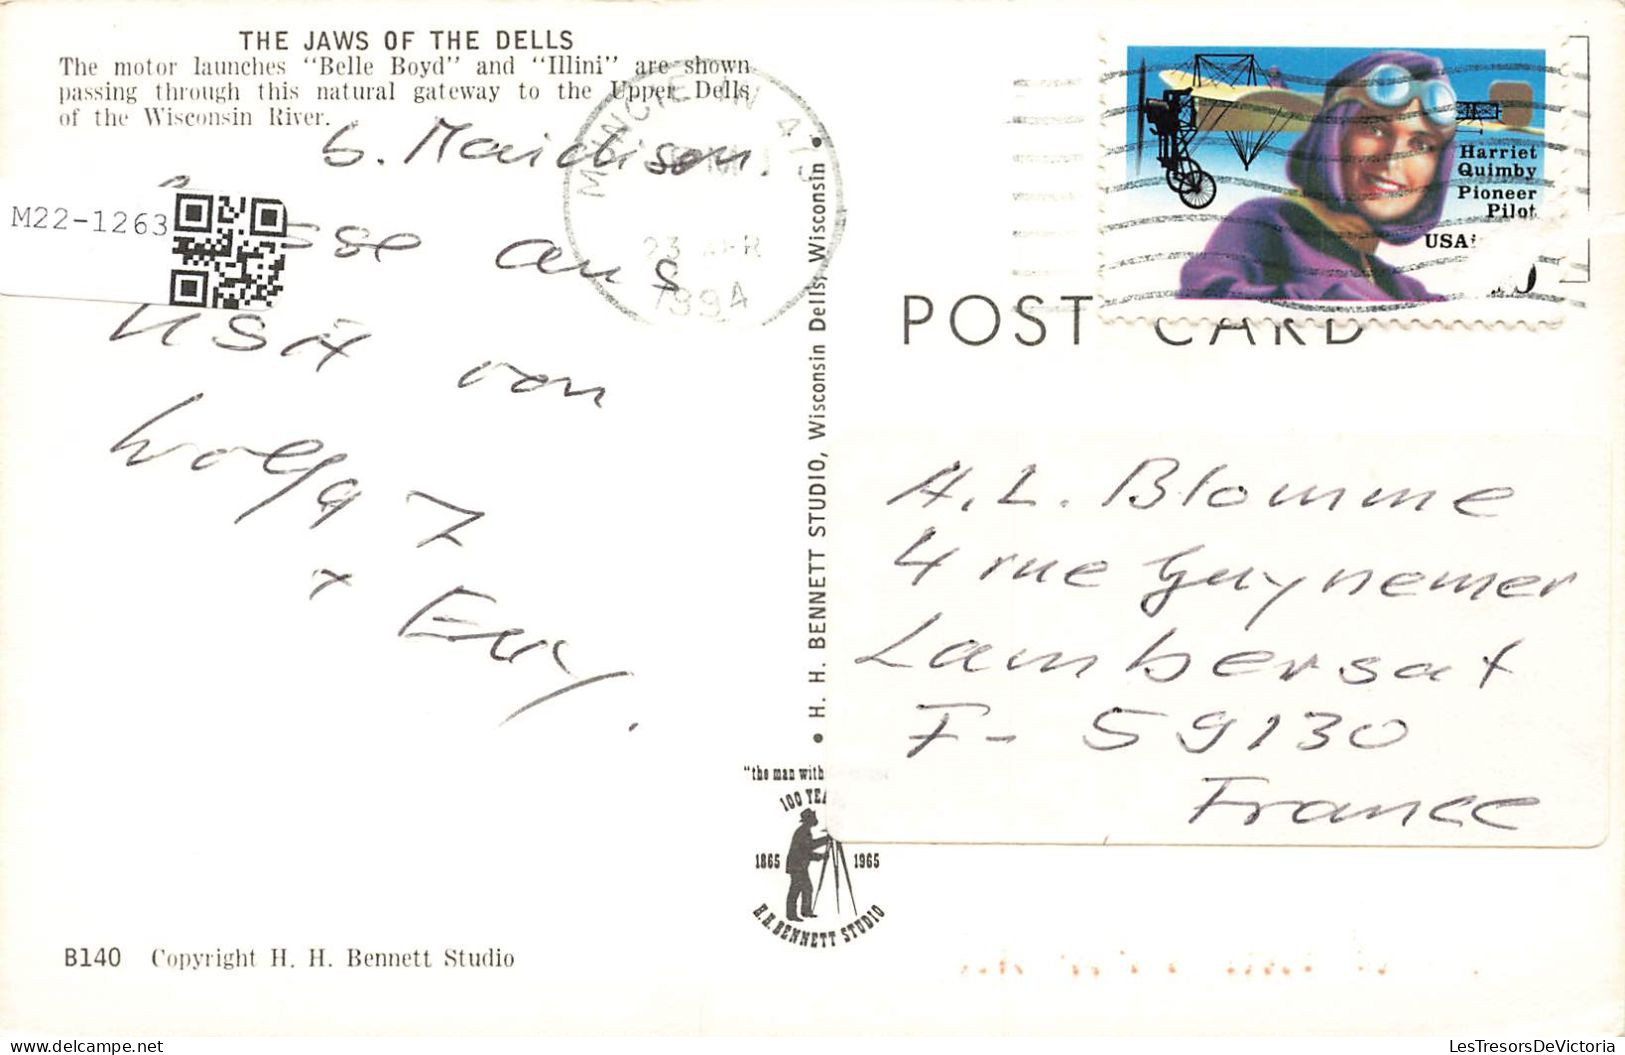 THE JAWS OF THE DELLS
The motor launches "Belle Boyd" and "Illini" are shown
passing through this natural gateway to the Upper Dells
of the Wisconsin River.
M22-1263
aus
USA von
Wolfga
+
MUNCIE IN 47
23 APR
1994
● H. H. BENNETT STUDIO, Wisconsin Dells, Wisconsin ●
Harriet
Quimby
Pioneer
Pilot
USA
POST CARD
A. L. Blomme
4 rue Guynemer
Lambersat
F- 59130
France
"the man with
100 YEA
1865 1965
H.H. BENNETT STUDIO
B140 Copyright H. H. Bennett Studio
LesTresorsDeVictoria